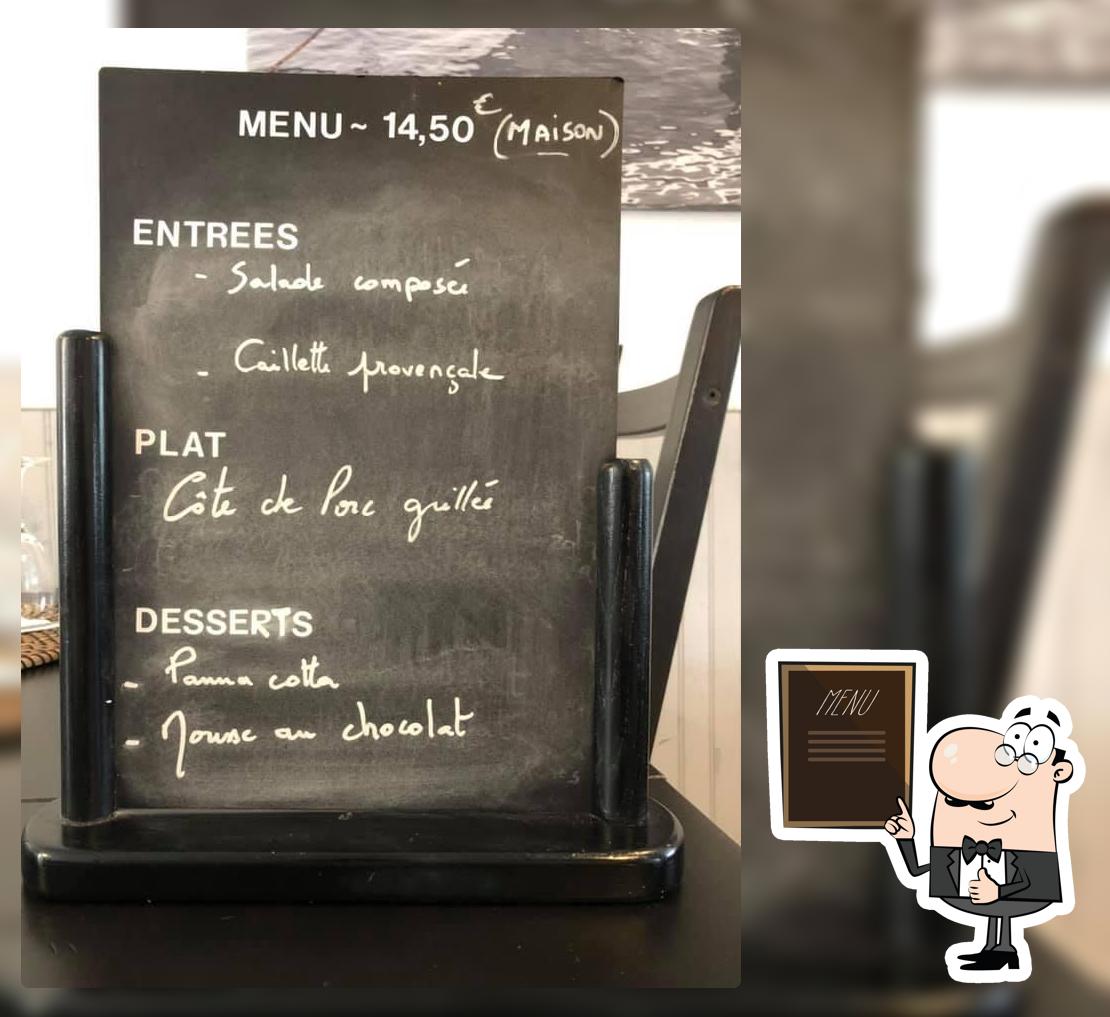 MENU ~ 14,50 € (MAISON)
ENTREES
- Salade composé
- Caillette provençale
PLAT
Côte de Porc grillée
DESSERTS
- Panna cotta
- Mousse au chocolat
MENU